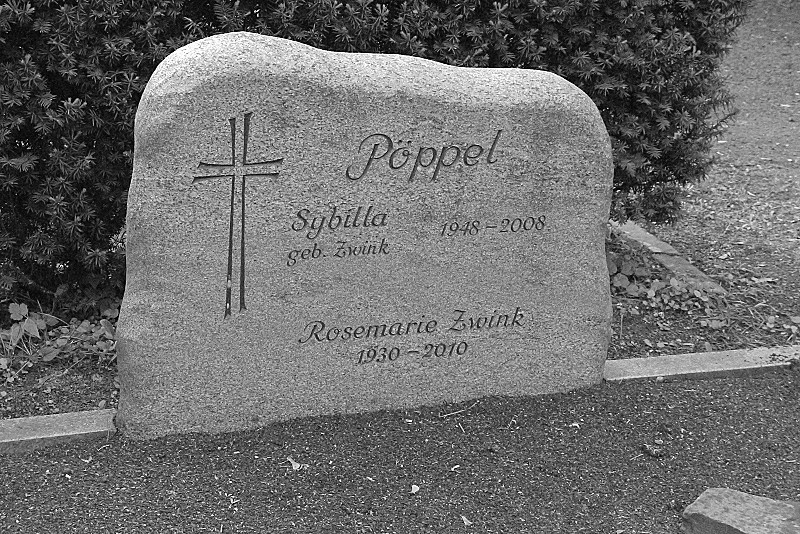 Pöppel
Sybilla 1948-2008
geb. Zwink
Rosemarie Zwink
1930-2010